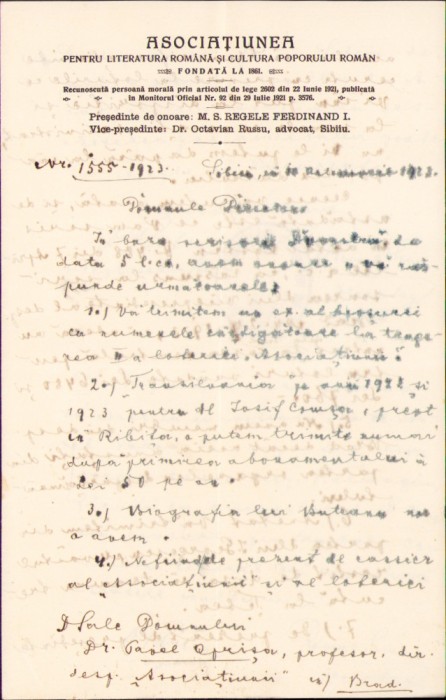 ASOCIAŢIUNEA
PENTRU LITERATURA ROMÂNĂ ŞI CULTURA POPORULUI ROMÂN
FONDATĂ LA 1861.
Recunoscută persoană morală prin articolul de lege 2602 din 22 Iunie 1921, publicată
in Monitorul Oficial Nr. 92 din 29 Iulie 1921 p. 3576.
Preşedinte de onoare: M. S. REGELE FERDINAND I.
Vice-preşedinte: Dr. Octavian Russu, advocat, Sibiiu.
Nr. 1555-1923. Sibiiu, in 10 1923.
Domnule Director,
In baza scrisorii Dvoastră, de
data 5 l. c., avem onoare a vă răs-
punde urmatoarele:
1.) Vă trimitem un ex. al broşurii
cu numerele câştigătoare la trage-
rea II a loteriei „Asociaţiunii".
2.) „Transilvania" pe anii 1922 şi
1923 pentru dl Iosif Comşa, preot
in Ribiţa, o putem trimite numai
după primirea abonamentului à
Lei 50 pe an.
3.) Biografia lui Buteanu nu
o avem.
4.) Nefiind de prezent dl cassier
al „Asociaţiunii" şi al loteriei
D Sale Domnului
Dr. Pavel Oprişa, profesor, dir.
desp. „Asociaţiunii" in Brad.